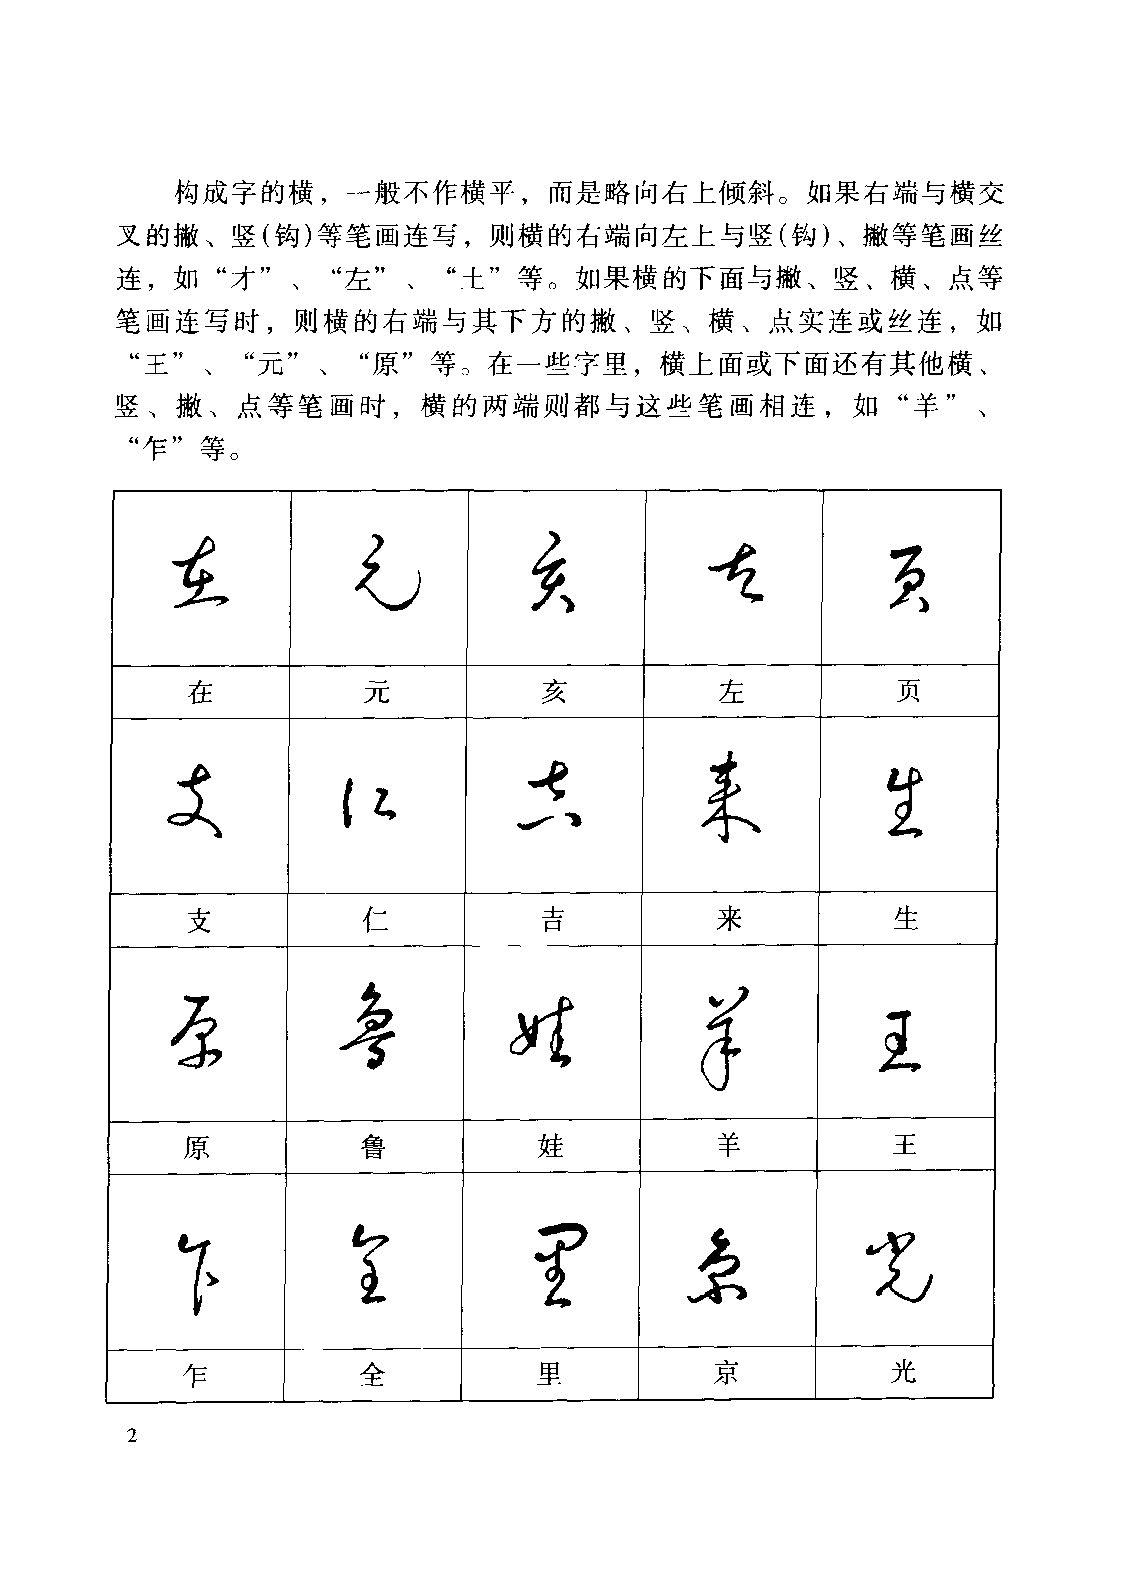 构成字的横，一般不作横平，而是略向右上倾斜。如果右端与横交
叉的撇、竖(钩)等笔画连写，则横的右端向左上与竖(钩)、撇等笔画丝
连，如“才”、“左”、“土”等。如果横的下面与撇、竖、横、点等
笔画连写时，则横的右端与其下方的撇、竖、横、点实连或丝连，如
“王”、“元”、“原”等。在一些字里，横上面或下面还有其他横、
竖、撇、点等笔画时，横的两端则都与这些笔画相连，如“羊”、
“乍”等。
在 元 亥 左 页
在 元 亥 左 页
支 仁 吉 来 生
支 仁 吉 来 生
原 鲁 娃 羊 王
原 鲁 娃 羊 王
乍 全 里 京 光
乍 全 里 京 光
2